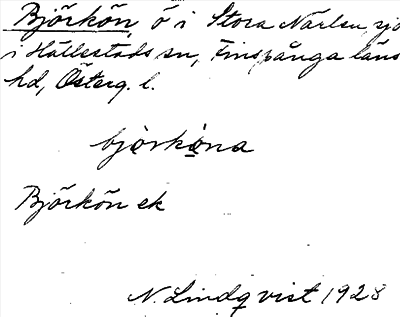 Björkön, ö i Stora Närlsn sjö
i Hällestads sn, Finspånga läns
hd, Österg. l.
björköna
Björkön ek
N. Lindqvist 1928